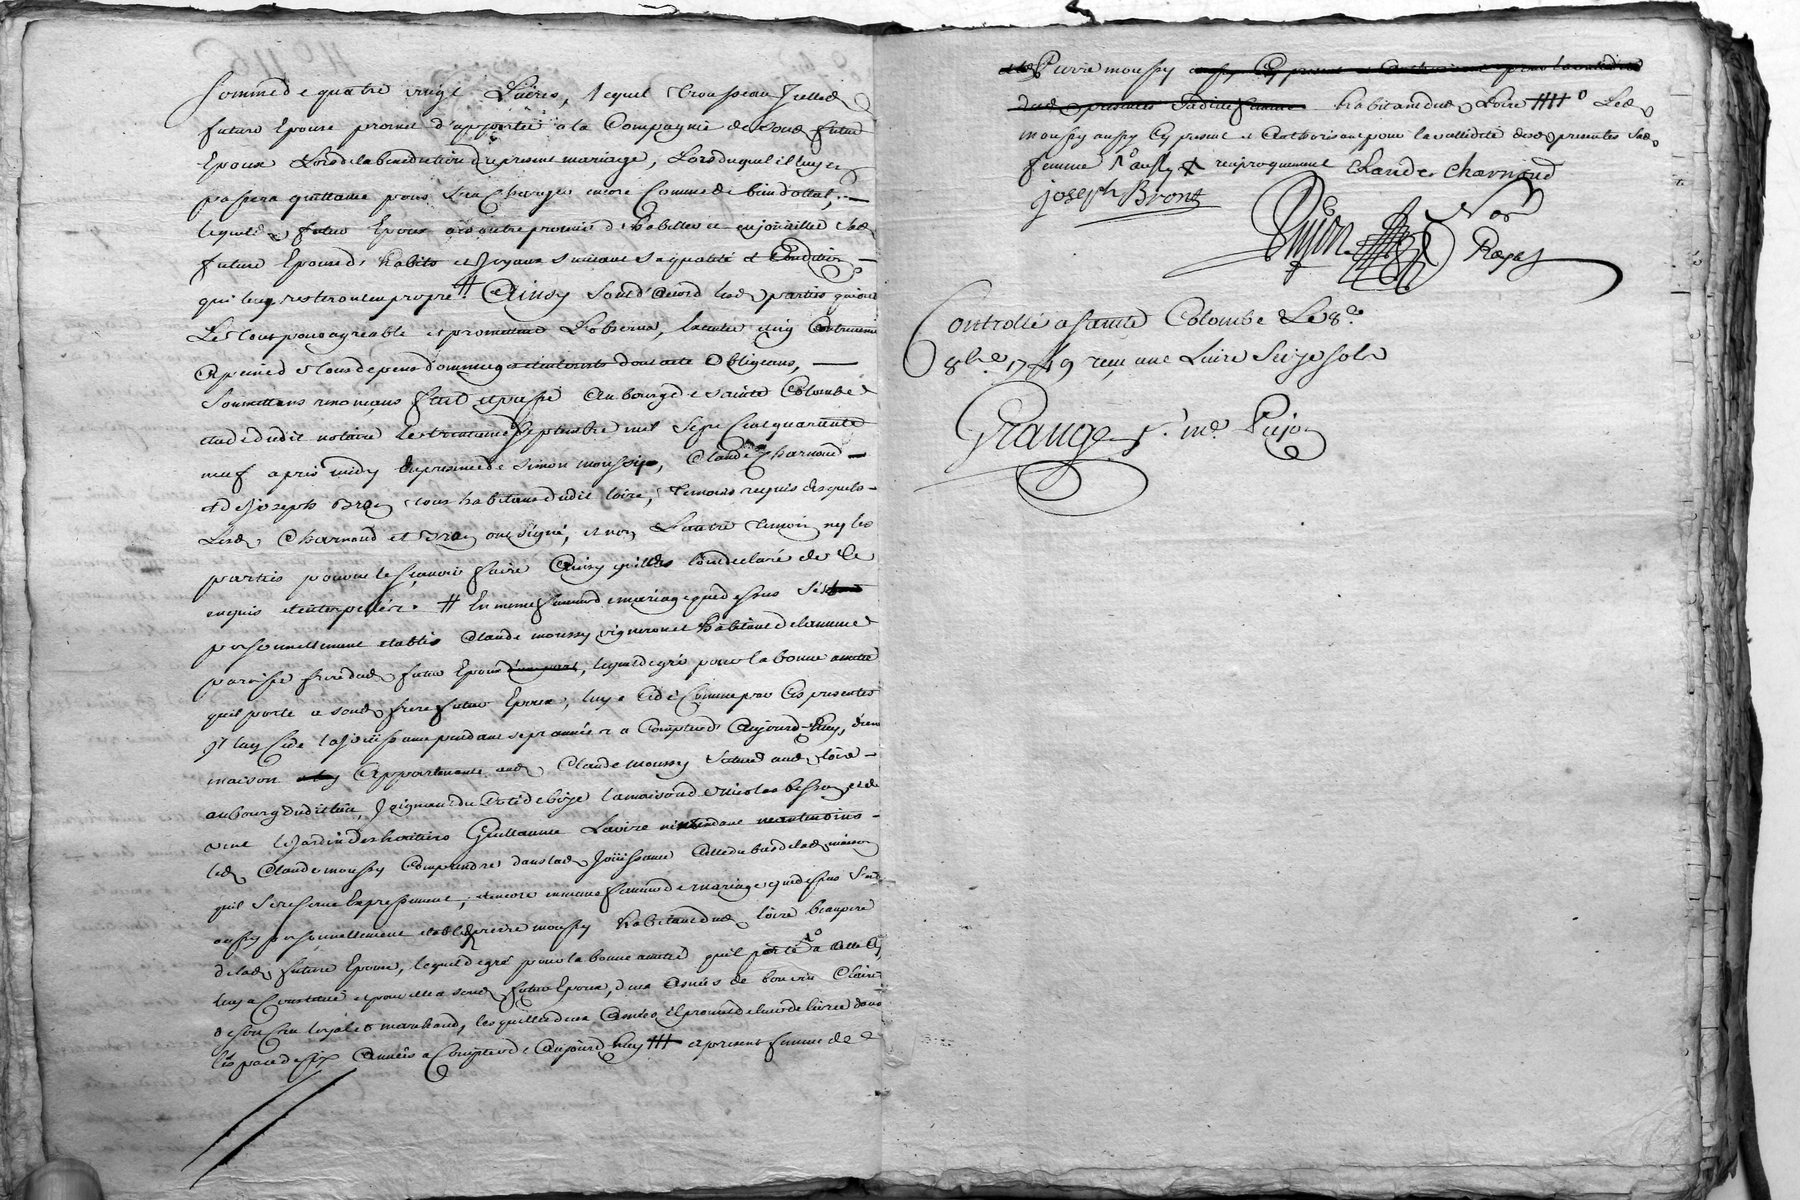 Somme de quatre vingt Livres, lequel trousseau Icelled
future Epouse promet d'apporter a la Compagnie de soud futur
Epoux Lors de la benediction du present mariage, Lors duquel il luy en
passera quittance pour Ses Charges encore Comme de bien dottal,
lequeld futur Epoux a en outre promis d'habiller et enjoüailler lad
future Epouse d' habits et Joyaux suivant sa qualité et Condition
qui luy resteront en propre # Ainsy Sont d'acord lesd parties qui ont
Le tout pour agreable et promettent L'observer,
A peine de tous depens dommages et interests dont acte Obligeans,
Soumettans renonçans Fait et passé Au bourg de sainte Colombe
etude dudit notaire le trentieme septembre mil Sept Cent quarante
neuf apres midy En presence de Simon moussy, Claude Charnond
et de Joseph Bron tous habitans dudit loire, temoins requis desquels
Lesd Charnond et Bron ont signé, et non L'autre temoin ny les
parties pour ne le sçavoir faire Ainsy qu'illes l'ont declaré de ce
enquis et interpellés. # En meme faveur de mariage que dessus s'est
personnellement etablis Claude moussy vigneron et habitant de la meme
paroisse frere dud futur Epoux, lequel de gré pour la bonne amitié
qu'il porte a soud frere futur Epoux, luy a Cedé Comme par Ces presentes
Il luy Cede la Joüissance pendant sept années a Compter d' Aujourd-huy, d'une
maison Appartenante aud Claude moussy Scituée aud loire
au bourg dudit lieu, Joignant du Coté de bize la maison de Nicolas besson et de
vent le Jardin des heritiers Guillaume Lavire
led Claude moussy Comprendre dans lad Joüissance Celle du bas de lad maison
qu'il Se reserve Expressement, et encore en meme faveur de mariage que dessus s'est
aussy personnellement etably pierre moussy habitant dud loire beaupere
de lad future Epouse, lequel de gré pour la bonne amitié qu'il porte a Celle Cy
luy a Constitué et pour elle a soud futur Epoux, deux Anées de bon vin Clairet
de son Cru loyal et marchand, lesquelles deux Anées Il promet de luy delivrer dans
l'espace de six Années a Compter d' Aujourd huy #### et present femme de
Pierre moussy habitant dud Loire #### Led
moussy aussy Cy present et Authorisant pour la vallidité desd presentes Sad
femme aussy reciproquement Claude Charnond
Joseph Bront
Pujon No.re
Royal
Controllé a Sainte Colombe Le 8e
8bre 1749 reçu une Livre Seize sols
Grange p. Mr. Pujon